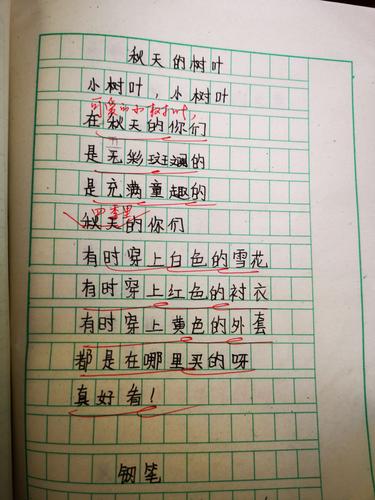 秋天的树叶
小树叶，小树叶
可爱的小树叶，
在秋天的你们
是无彩斑斓的
是充满童趣的
四季里
秋天的你们
有时穿上白色的雪花
有时穿上红色的衬衣
有时穿上黄色的外套
都是在哪里买的呀
真好看！
钢笔